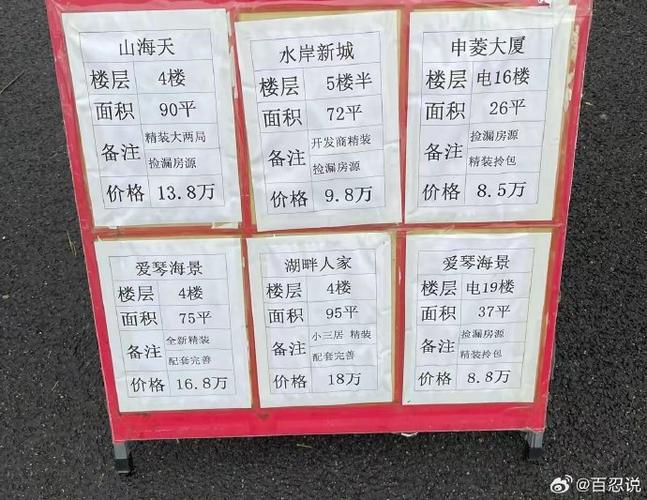 山海天
楼层 4楼
面积 90平
备注 精装大两局
捡漏房源
价格 13.8万
水岸新城
楼层 5楼半
面积 72平
备注 开发商精装
捡漏房源
价格 9.8万
申菱大厦
楼层 电16楼
面积 26平
备注 捡漏房源
精装拎包
价格 8.5万
爱琴海景
楼层 4楼
面积 75平
备注 全新精装
配套完善
价格 16.8万
湖畔人家
楼层 4楼
面积 95平
备注 小三居 精装
配套完善
价格 18万
爱琴海景
楼层 电19楼
面积 37平
备注 捡漏房源
精装拎包
价格 8.8万
@百忍说